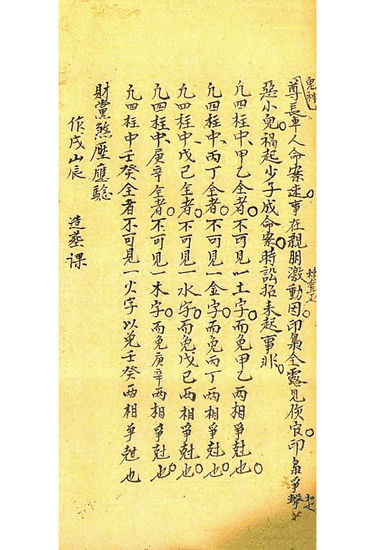 尊長軍人命案速事在親朋激動因印梟全露見侯官印梟爭擊
惡小兒禍起少子成命案時訟招未起事非
凢四柱中甲乙全者不可見一土字而免甲乙兩相爭尅也
凢四柱中丙丁全者不可見一金字而免丙丁兩相爭尅也
凢四柱中戊己全者不可見一水字而免戊己兩相爭尅也
凢四柱中庚辛全者不可見一木字而免庚辛兩相爭尅也
凢四柱中壬癸全者不可見一火字以免壬癸兩相爭尅也
財黨煞壓應驗
作戌山辰
造葬課